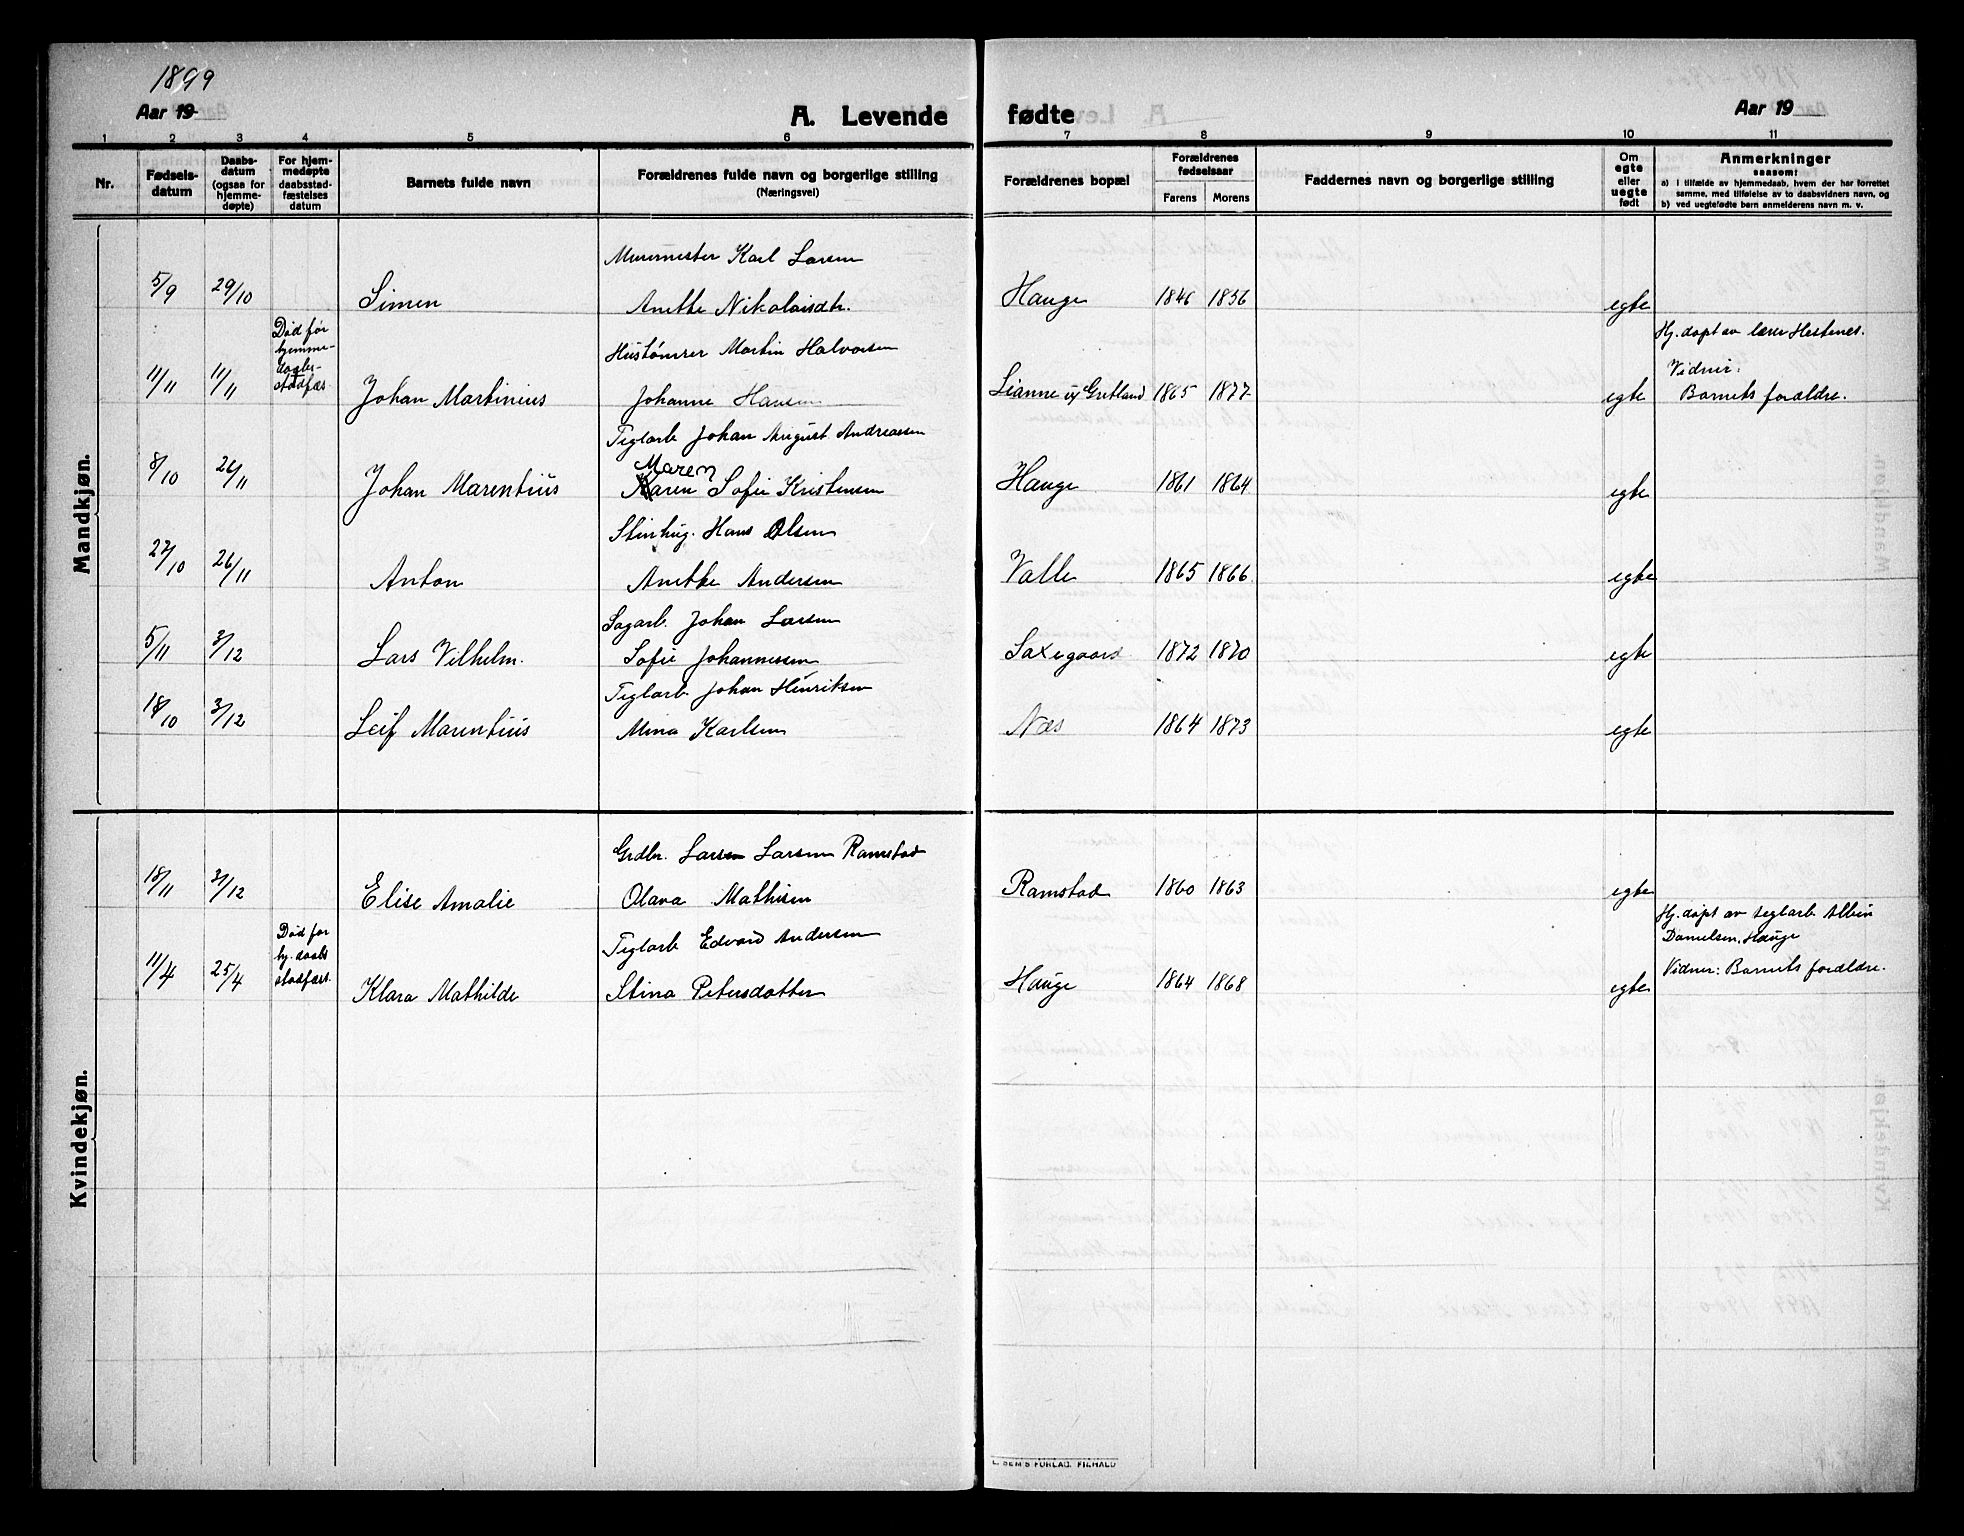 1899
Aar 19
A. Levende
fødte
Aar 19
1 2 3 4 5 6 7 8 9 10 11
Nr.
Fødsels-
datum
Daabs-
datum
(ogsaa for
hjemme-
døpte)
For hjem-
medøpte
daabsstad-
fæstelses
datum
Barnets fulde navn
Forældrenes fulde navn og borgerlige stilling
(Næringsvei)
Forældrenes bopæl
Forældrenes
fødselsaar
Farens Morens
Faddernes navn og borgerlige stilling
Om
egte
eller
uegte
født
Anmerkninger
saasom:
a) i tilfælde av hjemmedaab, hvem der har forrettet
samme, med tilføielse av to daabsvidners navn, og
b) ved uegtefødte barn anmelderens navn m. v.
Mandkjøn.
Murermester Karl Larsen
5/9 29/10 Simen Anethe Nikolaisdtr. Hauge 1846 1856 egte
Død før
hjemme-
daabs-
stadfæs.
Hustømrer Martin Halvorsen
Hj. døpt av lærer Hestenes.
Vidner:
11/11 11/11 Johan Martinius Johanne Hansen Lianne u/ Gretland 1865 1877 egte Barnets forældre.
Teglarb Johan August Andreassen
Maren
8/10 26/11 Johan Marentius Karen Sofie Kristensen Hauge 1861 1864 egte
Stenhug. Hans Olsen
27/10 26/11 Anton Anethe Andersen Valle 1865 1866 egte
Sagarb. Johan Larsen
5/11 3/12 Lars Vilhelm. Sofie Johannessen Saxegaard 1872 1870 egte
Teglarb Johan Henriksen
18/10 3/12 Leif Marentius Mina Karlsen Næs 1864 1873 egte
Kvindekjøn.
Grdbr. Larsen Larsen Ramstad
18/11 31/12 Elise Amalie Olava Mathisen Ramstad 1860 1863 egte
Død før
hj. daabs
stadfæst.
Teglarb Edvard Andersen
Hj. døpt av teglarb Albin
Danielsen, Hauge
Vidner: Barnets forældre.
11/4 25/4 Klara Mathilde Stina Petersdatter Hauge 1864 1868 egte
E. SEM'S FORLAG, FR.HALD